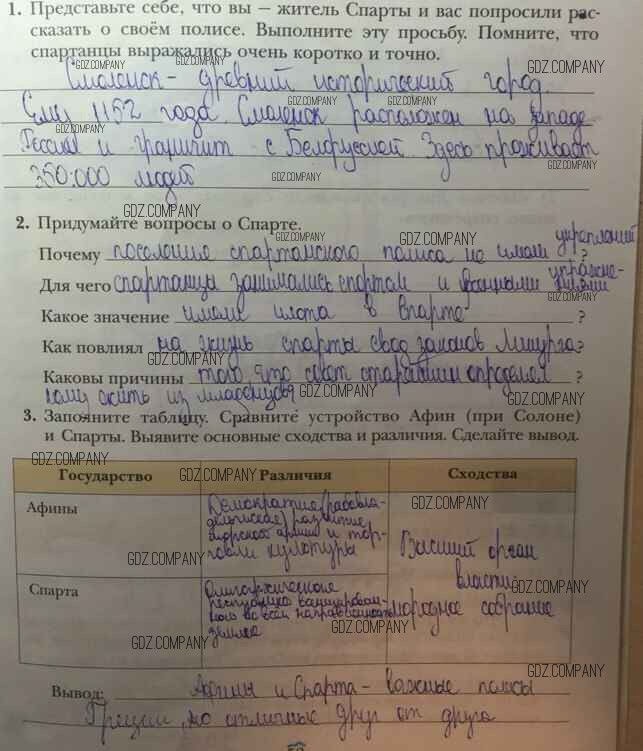 1. Представьте себе, что вы — житель Спарты и вас попросили рас-
сказать о своём полисе. Выполните эту просьбу. Помните, что
спартанцы выражались очень коротко и точно.
Смоленск - древний исторический город.
Ему 1152 года. Смоленск расположен на западе
России и граничит с Белоруссией. Здесь проживает
350.000 людей
2. Придумайте вопросы о Спарте.
Почему поселения спартанского полиса не имели укреплений ?
Для чего спартанцы занимались спортом и военными упражне-
ниями
Какое значение имели илоты в Спарте ?
Как повлиял на жизнь спарты свод законов Ликурга?
Каковы причины того, что совет старейшин определял ?
кому жить из младенцев
3. Заполните таблицу. Сравните устройство Афин (при Солоне)
и Спарты. Выявите основные сходства и различия. Сделайте вывод.
Государство Различия Сходства
Афины
Демократия (рабовла-
дельческая) развитие
морской армии и тор-
говли культуры
Спарта
Олигархическая
республика
земле
Высший орган
власти
народное собрание
Вывод: Афины и Спарта - важные полисы
Греции, но отличные друг от друга
GDZ.COMPANY